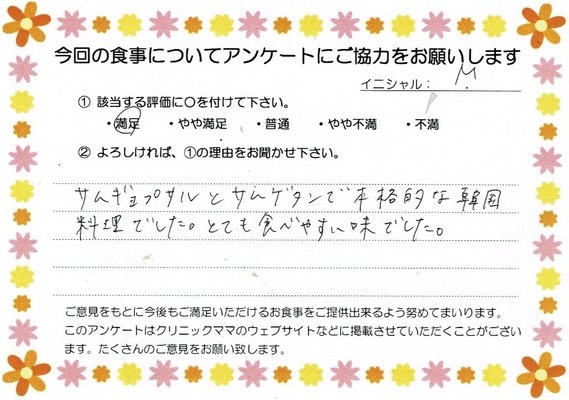 今回の食事についてアンケートにご協力をお願いします
イニシャル： M.
① 該当する評価に〇を付けて下さい。
・満足 ・やや満足 ・普通 ・やや不満 ・不満
② よろしければ、①の理由をお聞かせ下さい。
サムギョプサルとサムゲタンで本格的な韓国
料理でした。とても食べやすい味でした。
ご意見をもとに今後もご満足いただけるお食事をご提供出来るよう努めてまいります。
このアンケートはクリニックママのウェブサイトなどに掲載させていただくことがござい
ます。たくさんのご意見をお願い致します。